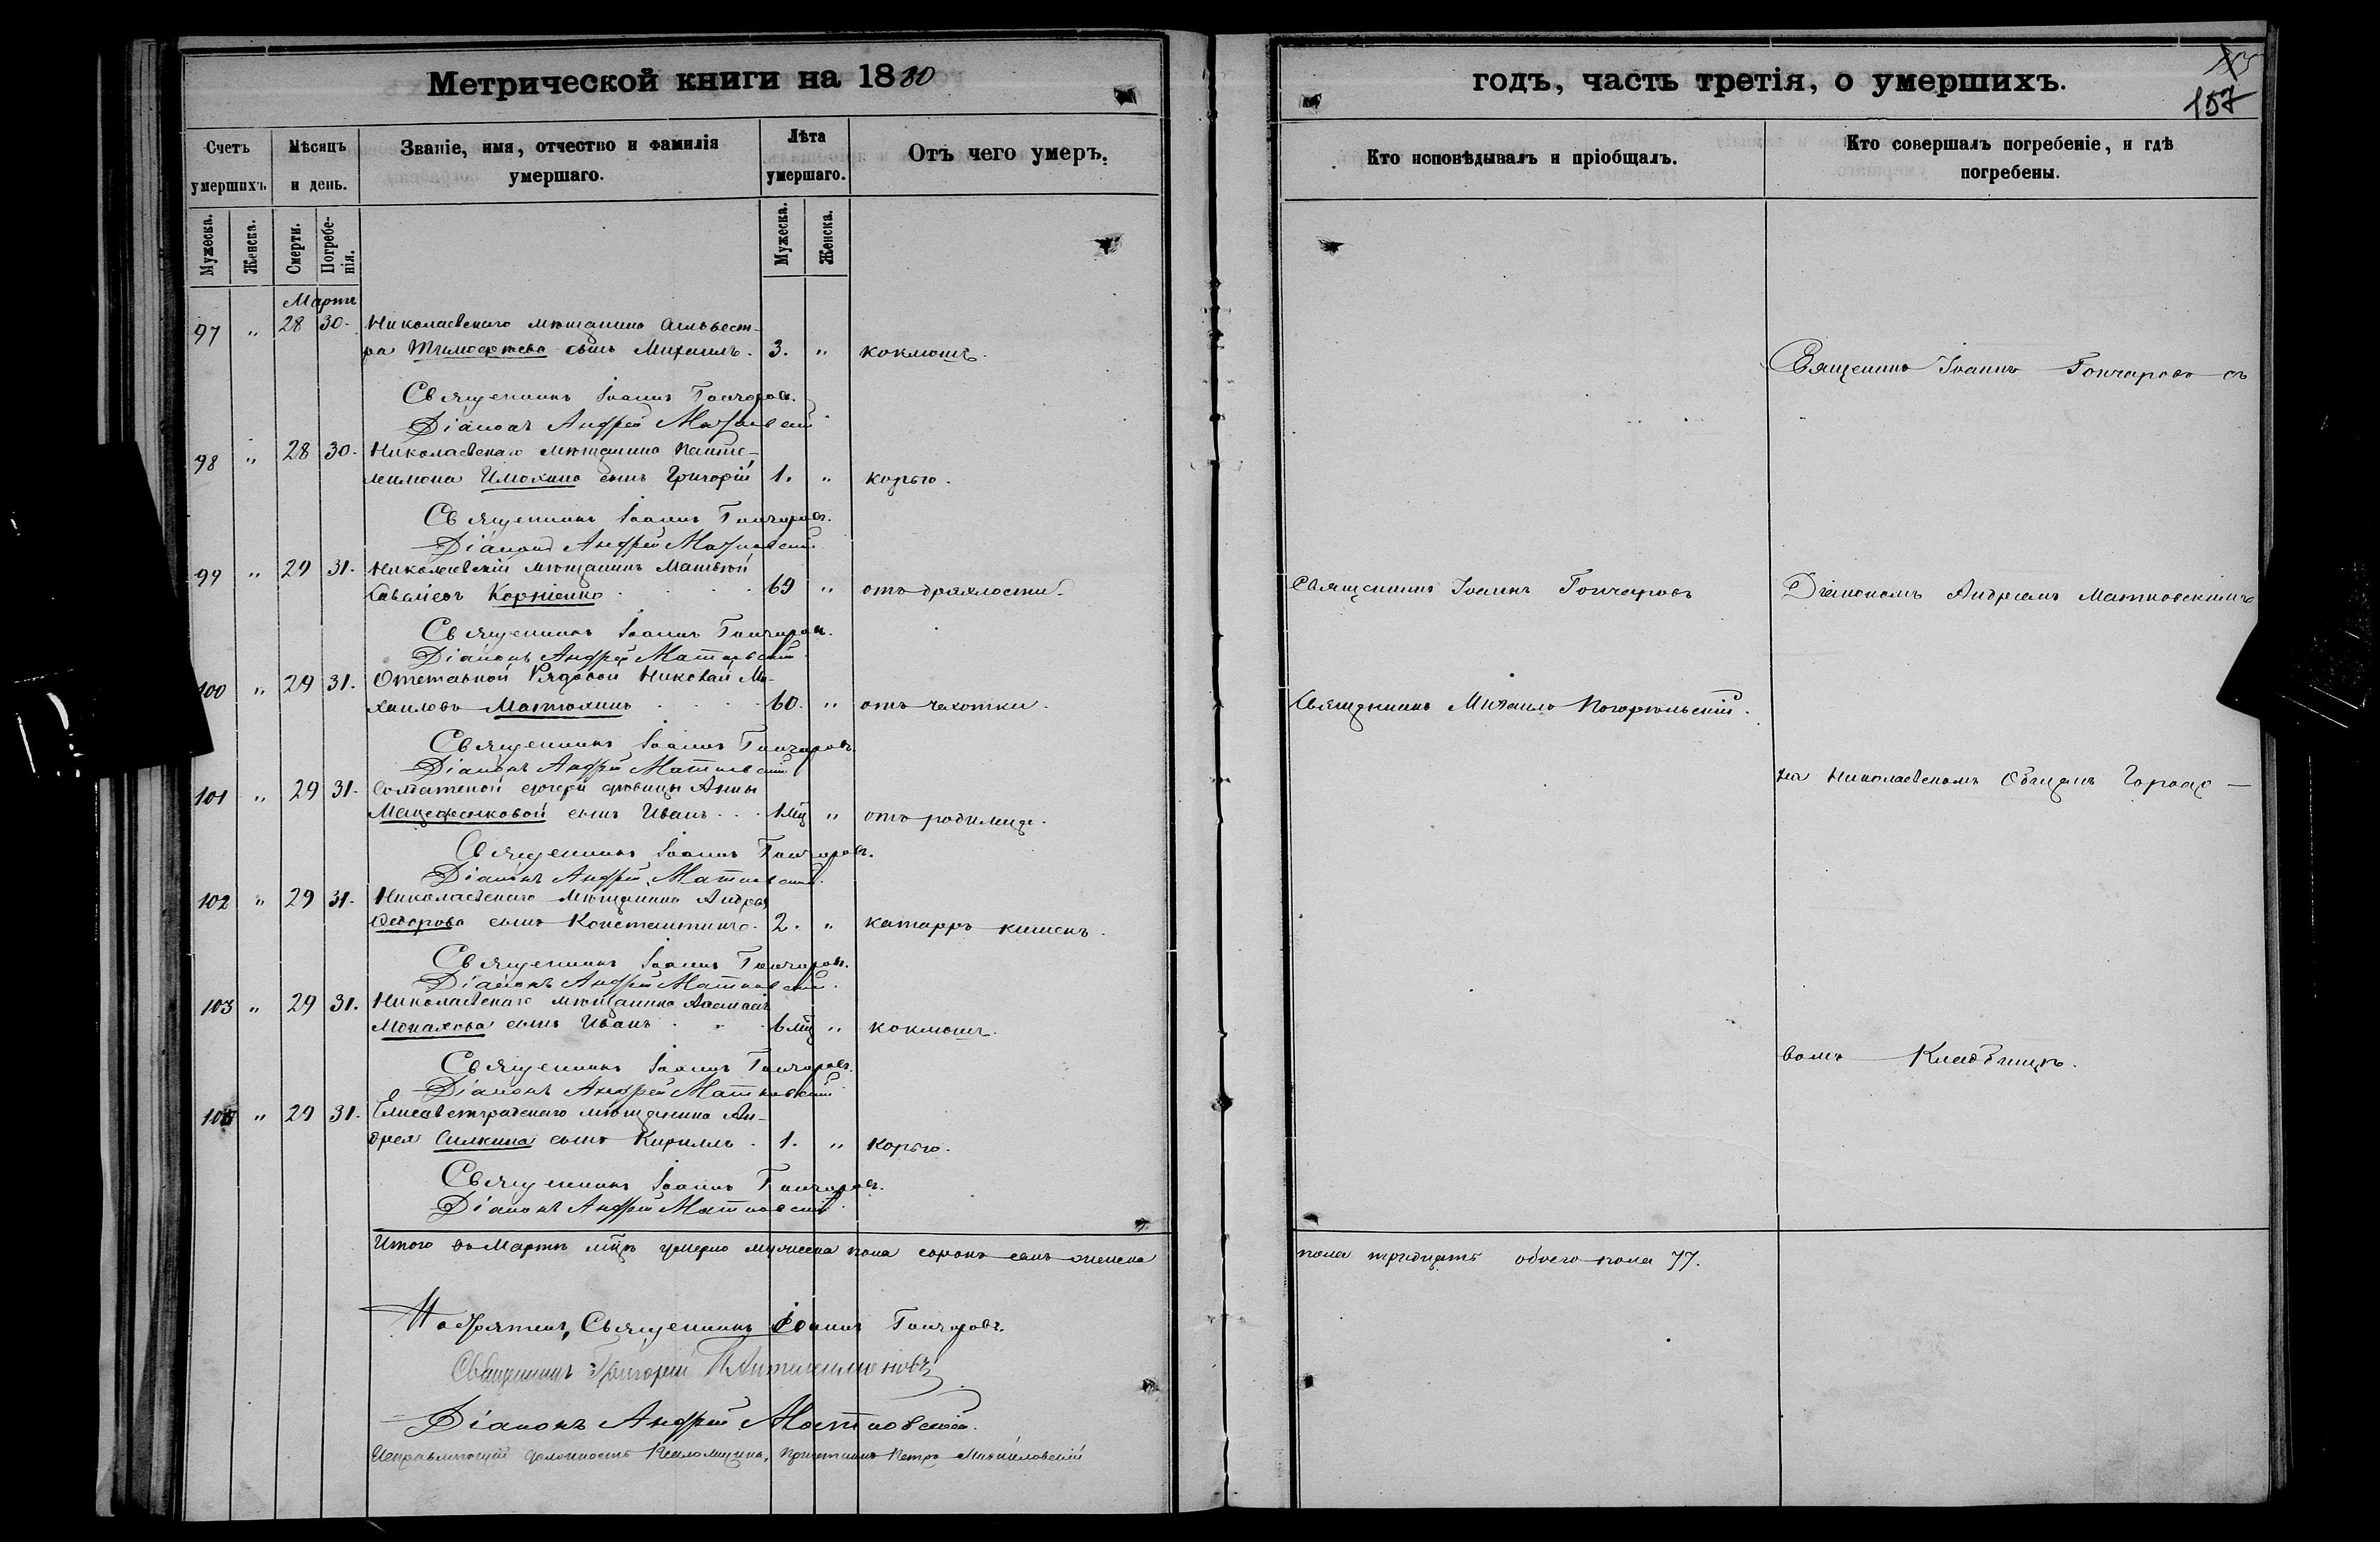 Метрической книги на 1880
Счетъ умершихъ.
Мѣсяцъ и день.
Званіе, имя, отчество и фамилія умершаго.
Лѣта умершаго.
Отъ чего умеръ.
Мужеска.
Женска.
Смерти.
Погребенія.
Мужеска.
Женска.
Мартъ
97 " 28 30. Николаевскаго мѣщанина Сильвест-
ра Тимофѣева сынъ Михаилъ. 3. " коклюшъ.
Священникъ Іоаннъ Гончаровъ.
Діаконъ Андрей Матковскій
98 " 28 30. Николаевскаго мѣщанина Панте-
леимона Илюхина сынъ Григорій 1. " корью.
Священникъ Іоаннъ Гончаровъ.
Діаконъ Андрей Матковскій.
99 " 29 31. Николаевскій мѣщанинъ Матвей
Корніенко 69 " отъ дряхлости.
Священникъ Іоаннъ Гончаровъ.
Діаконъ Андрей Матковскій
100 " 29 31. Отставной Рядовой Николай Ми-
хаиловъ Матюхинъ 60. " отъ чахотки.
Священникъ Іоаннъ Гончаровъ.
Діаконъ Андрей Матковскій
101 " 29 31. Солдатской дочери дѣвицы Анны
сынъ Иванъ 1 мц " отъ родимца.
Священникъ Іоаннъ Гончаровъ.
Діаконъ Андрей Матковскій.
102 " 29 31. Николаевскаго Мѣщанина Андрея
Федорова сынъ Константинъ. 2. " катарръ кишекъ.
Священникъ Іоаннъ Гончаровъ.
Діаконъ Андрей Матковскій.
103 " 29 31. Николаевскаго мѣщанина
Монахова сынъ Иванъ 6 мц " коклюшъ.
Священникъ Іоаннъ Гончаровъ.
Діаконъ Андрей Матковскій
104 " 29 31. Елисаветградскаго мѣщанина Ан-
дрея Силкина сынъ Кириллъ. 1. " корью.
Священникъ Іоаннъ Гончаровъ.
Діаконъ Андрей Матковскій.
Итого въ Мартѣ мцѣ умерло мужеска пола сорокъ семь женска
Священникъ Іоаннъ Гончаровъ.
Священникъ Григорій Пантелеимоновъ
Діаконъ Андрей Матковскій.
Исправляющій должность Псаломщика, Петръ Михайловскій
годъ, часть третія, о умершихъ.
157
Кто исповѣдывалъ и пріобщалъ.
Кто совершалъ погребеніе, и гдѣ погребены.
Священникъ Іоаннъ Гончаровъ съ
Священникъ Іоаннъ Гончаровъ
Діакономъ Андреемъ Матковскимъ
Священникъ Михаилъ Погорѣльскій.
на Николаевскомъ Общемъ Городс—
комъ Кладбищѣ.
пола тридцать обоего пола 77.